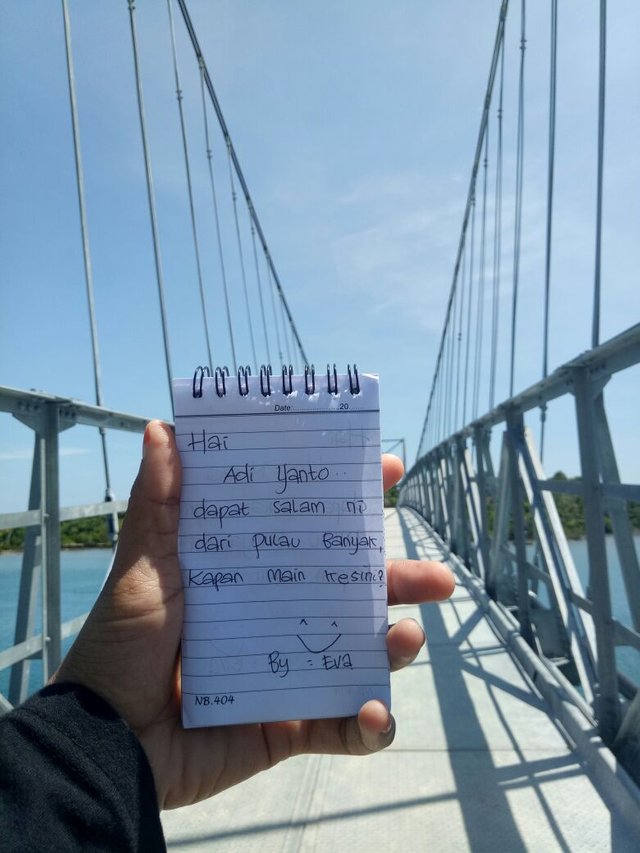 Date: .20
Hai
Adi Yanto..
dapat salam ni
dari pulau Banyak,
Kapan main kesini?
By = Eva
NB.404